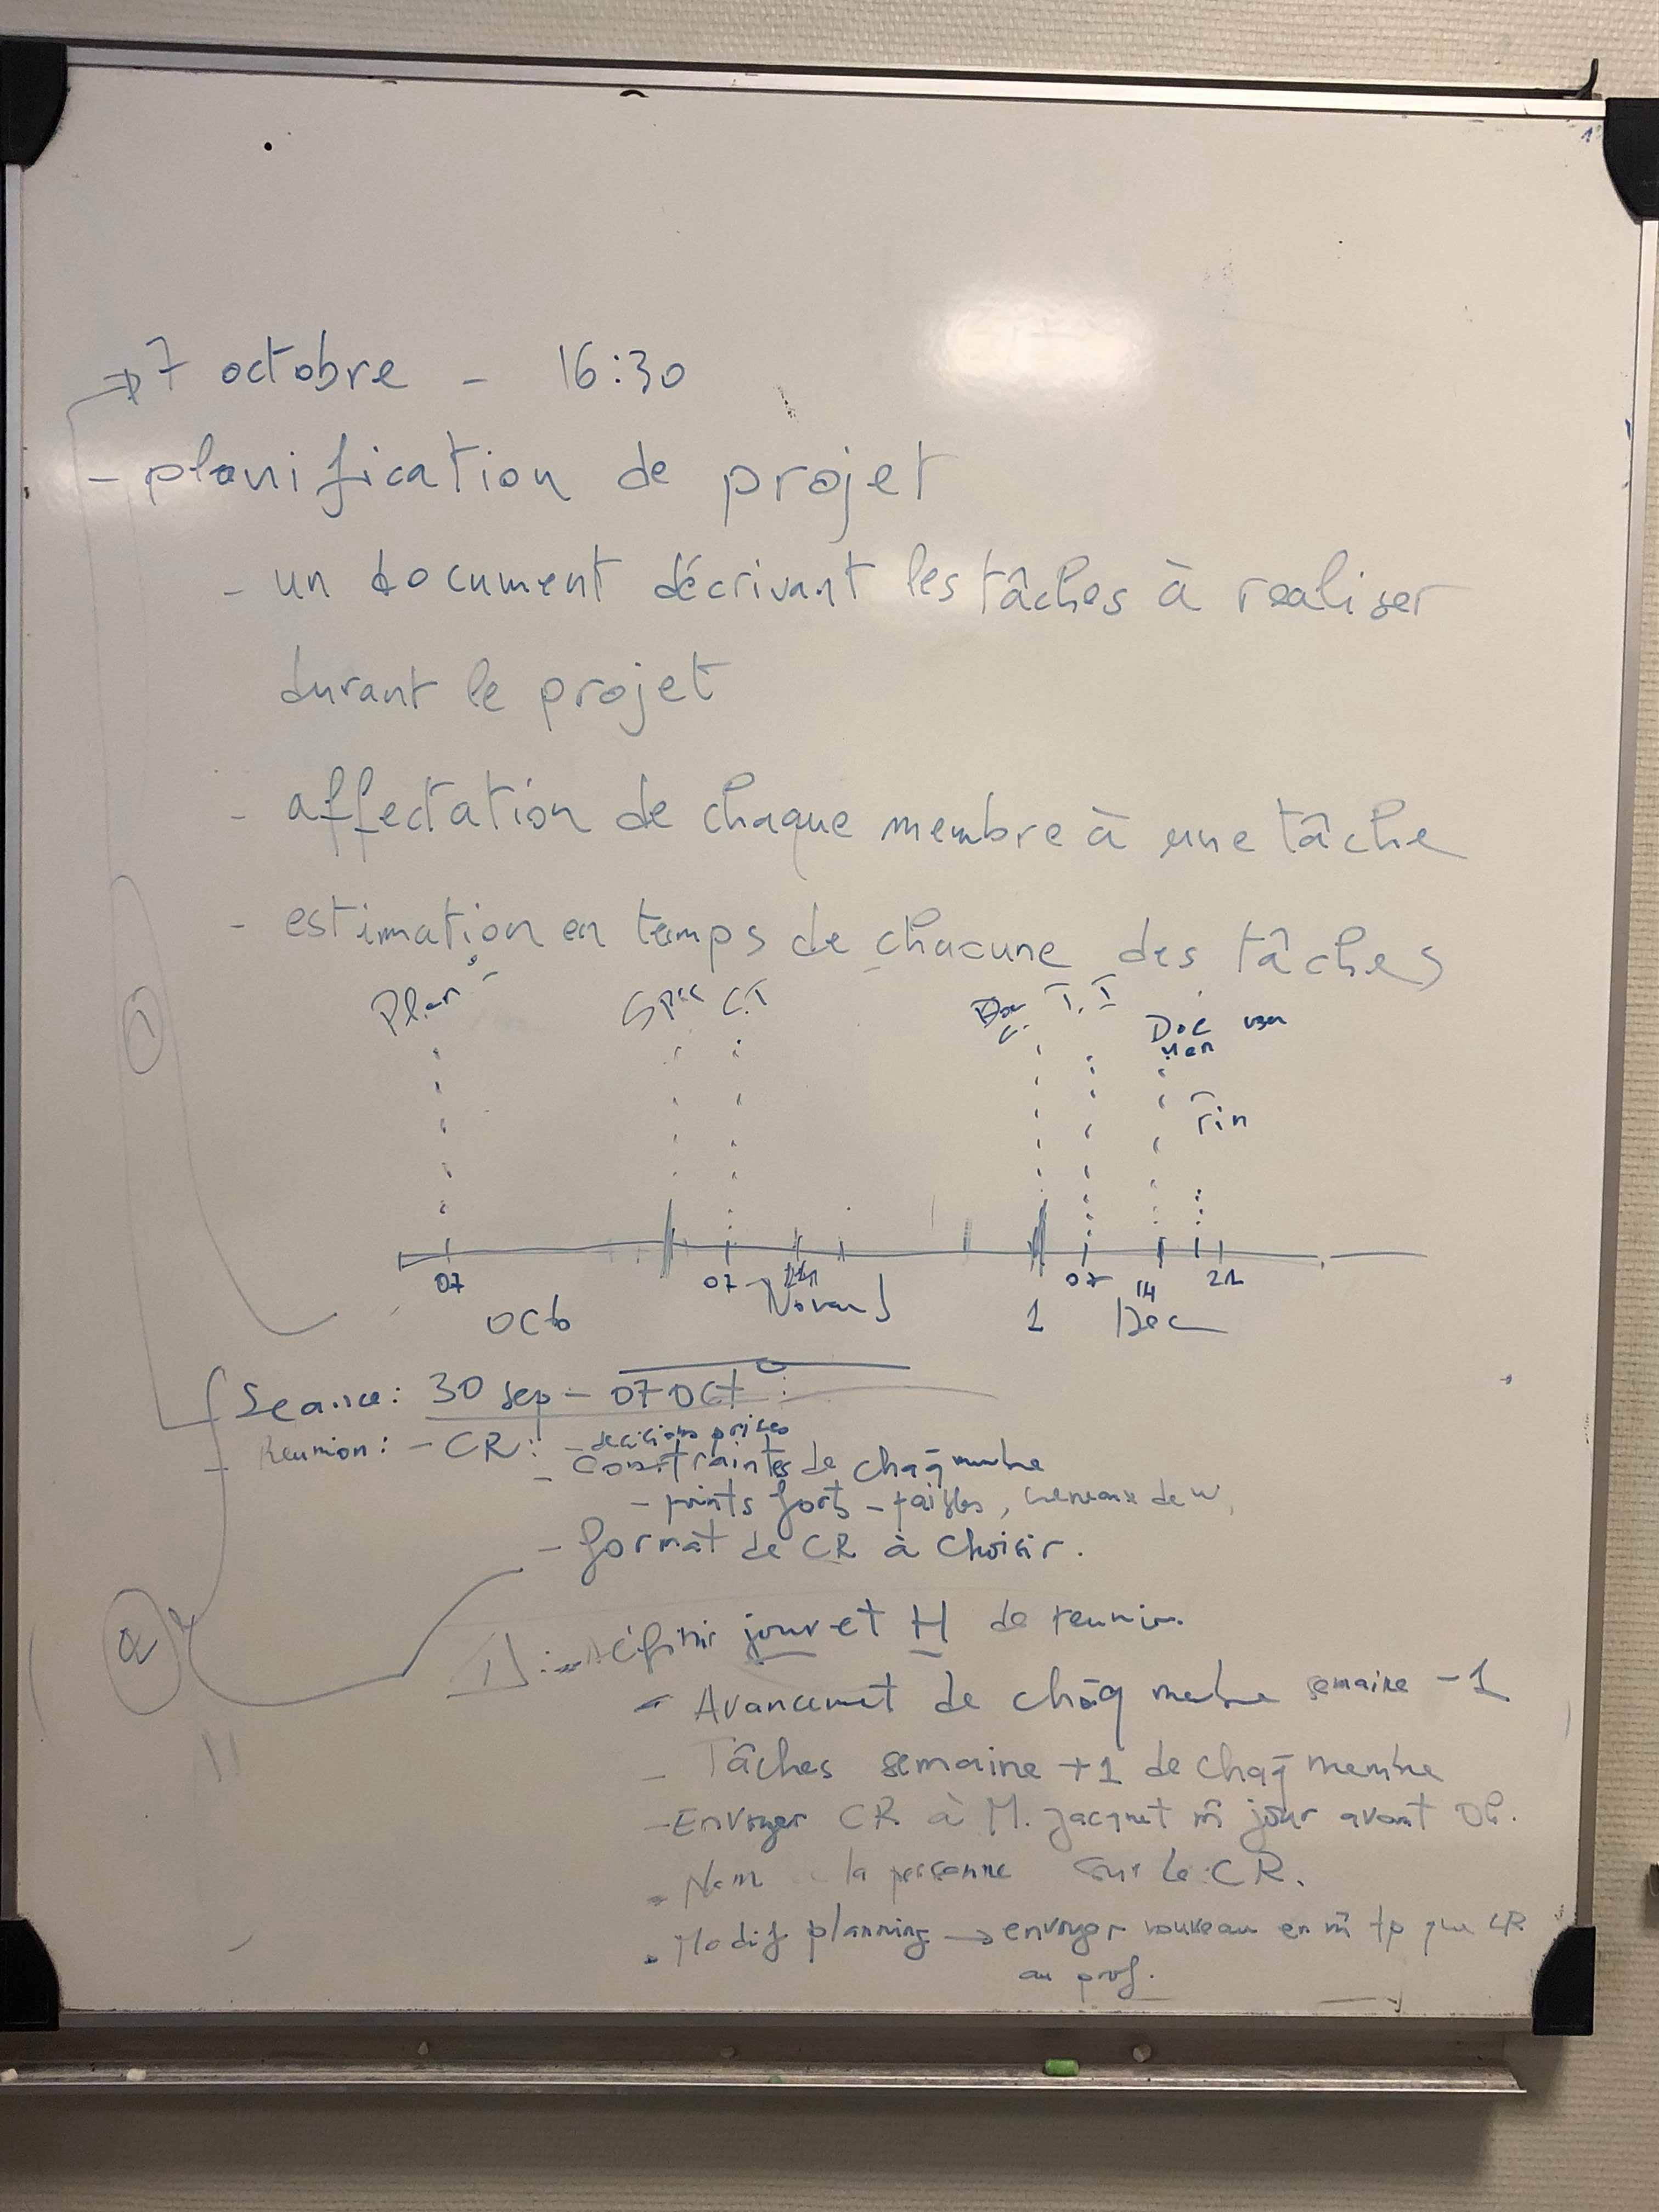 → 7 octobre - 16:30
- planification de projet
- un document décrivant les tâches à realiser
durant le projet
- affectation de chaque membre à une tâche
- estimation en temps de chacune des tâches
Plan Spec C.T Doc T.I Doc
Fin
07 07 1 07 14 21
Octo Dec
Seance: 30 sep - 07 Oct
Reunion: - CR: - decisions prises
- Contraintes de chaq membre
- points forts - faibles, creneaux de w
- format de CR à choisir.
1) définir jour et H de reunion
- Avancemet de chaq membre semaine -1
- Tâches semaine +1 de chaq membre
- Envoyer CR à M. Jacquet m̄ jour avant 0h.
- Nom la personne sur le CR.
- Modif planning → envoyer nouveau en m̄ tp que CR
au prof.
2